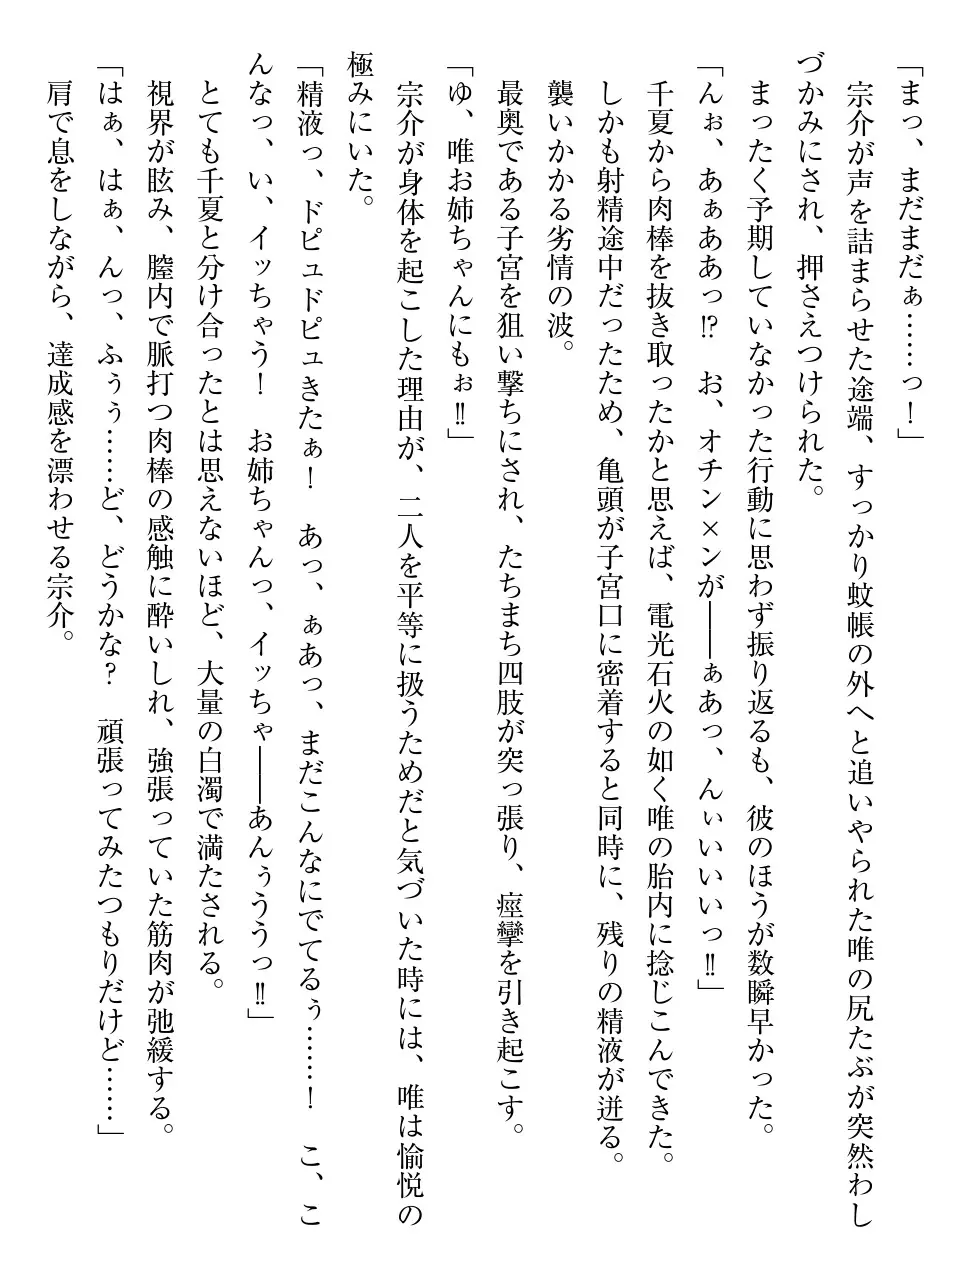 「まっ、まだまだぁ……っ！」
宗介が声を詰まらせた途端、すっかり蚊帳の外へと追いやられた唯の尻たぶが突然わし
づかみにされ、押さえつけられた。
まったく予期していなかった行動に思わず振り返るも、彼のほうが数瞬早かった。
「んぉ、あぁああっ⁉　お、オチン×ンが――ぁあっ、んぃいいいっ‼」
千夏から肉棒を抜き取ったかと思えば、電光石火の如く唯の胎内に捻じこんできた。
しかも射精途中だったため、亀頭が子宮口に密着すると同時に、残りの精液が迸る。
襲いかかる劣情の波。
最奥である子宮を狙い撃ちにされ、たちまち四肢が突っ張り、痙攣を引き起こす。
「ゆ、唯お姉ちゃんにもぉ‼」
宗介が身体を起こした理由が、二人を平等に扱うためだと気づいた時には、唯は愉悦の
極みにいた。
「精液っ、ドピュドピュきたぁ！　あっ、ぁあっ、まだこんなにでてるぅ……！　こ、こ
んなっ、い、イッちゃう！　お姉ちゃんっ、イッちゃ――あんぅううっ‼」
とても千夏と分け合ったとは思えないほど、大量の白濁で満たされる。
視界が眩み、膣内で脈打つ肉棒の感触に酔いしれ、強張っていた筋肉が弛緩する。
「はぁ、はぁ、んっ、ふぅぅ……ど、どうかな？　頑張ってみたつもりだけど……」
肩で息をしながら、達成感を漂わせる宗介。